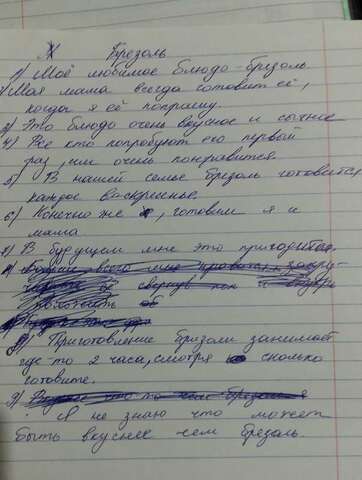 Брезоль
1) Моё любимое блюдо - брезоль
2) Моя мама всегда готовит её,
когда я её попрошу.
3) Это блюдо очень вкусное и сытное
4) Все кто попробуют его первой
раз, им очень понравится.
5) В нашей семье брезоль готовится
каждое воскресенье.
6) Конечно же, готовим я и
мама.
7) В будущем мне это пригодится.
8) Приготовление брезоли занимает
где-то 2 часа, смотря сколько
готовите.
9)
Я не знаю что может
быть вкуснее чем брезоль.